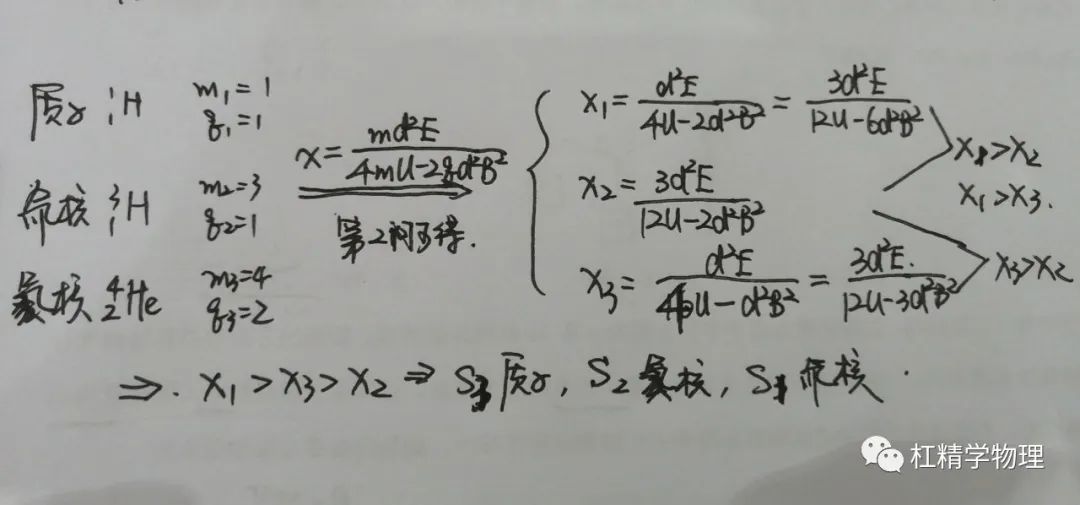 质子 ¹₁H m₁=1 q₁=1
氚核 ³₁H m₂=3 q₂=1
氦核 ⁴₂He m₃=4 q₃=2
x=md²E/(4mU-2qd²B²)
第2问可得.
x₁=d²E/(4U-2d²B²)=3d²E/(12U-6d²B²)
x₂=3d²E/(12U-2d²B²)
x₃=d²E/(4U-d²B²)=3d²E./(12U-3d²B²)
x₁>x₂
x₁>x₃.
x₃>x₂
⇒. x₁>x₃>x₂ ⇒ S₃质子, S₂氦核, S₁氚核.
杠精学物理